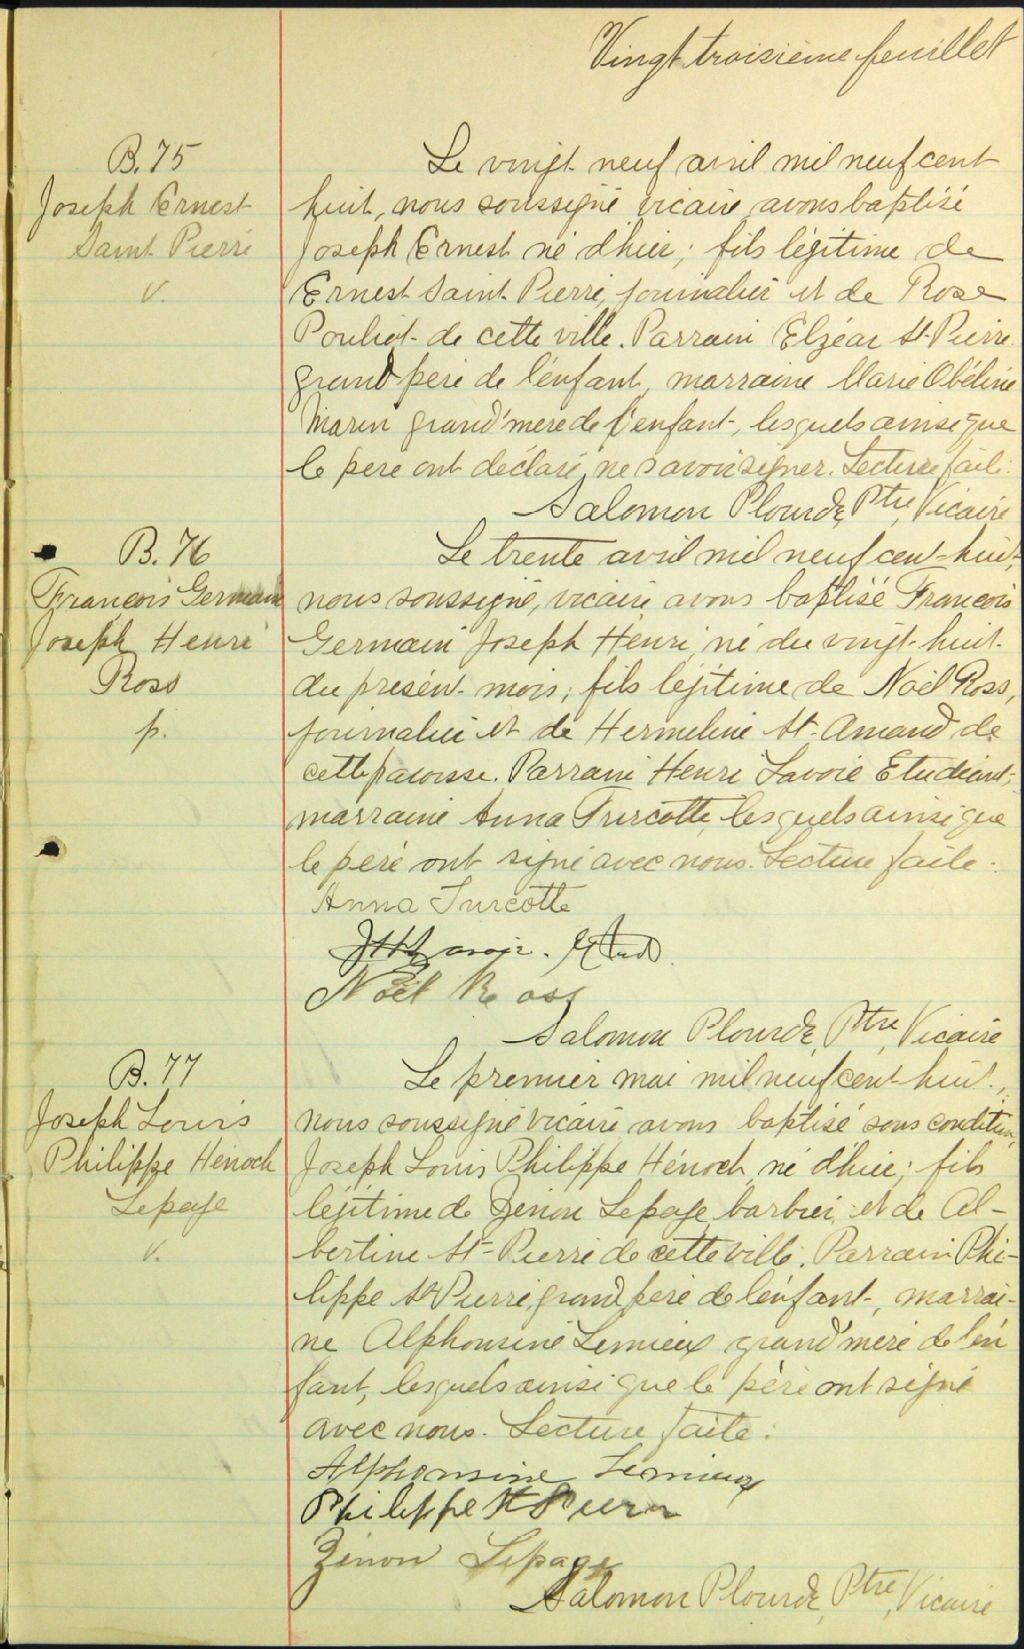 Vingt troisième feuillet
B. 75
Joseph Ernest
Saint Pierre
v.
Le vingt neuf avril mil neuf cent
huit, nous soussigné vicaire avons baptisé
Joseph Ernest né d'hier; fils légitime de
Ernest Saint Pierre, journalier et de Rose
Pouliot de cette ville. Parrain Elzéar St-Pierre
grand père de l'enfant, marraine Marie Obéline
Marin grand'mère de l'enfant, lesquels ainsi que
le père ont déclaré ne savoir signer. Lecture faite:
Salomon Plourde, Ptre, Vicaire
B. 76
François Germain
Joseph Henri
Ross
p.
Le trente avril mil neuf cent-huit,
nous soussigné, vicaire avons baptisé François
Germain Joseph Henri, né du vingt-huit
du présent mois; fils légitime de Noël Ross,
journalier et de Hermeline St-Amand de
cette paroisse. Parrain Henri Lavoie Etudiant,
marraine Anna Turcotte, lesquels ainsi que
le père ont signé avec nous. Lecture faite:
Anna Turcotte
Lavoie. Etud.
Noël Ross
Salomon Plourde, Ptre, Vicaire
B. 77
Joseph Louis
Philippe Hénoch
Lepage
v.
Le premier mai mil neuf cent huit,
nous soussigné vicaire avons baptisé sous condition,
Joseph Louis Philippe Hénoch, né d'hier; fils
légitime de Zénon Lepage, barbier, et de Al-
bertine St-Pierre de cette ville. Parrain Phi-
lippe St Pierre, grand père de l'enfant, marrai-
ne Alphonsine Lemieux grand'mère de l'en
fant, lesquels ainsi que le père ont signé
avec nous. Lecture faite:
Alphonsine Lemieux
Philippe St Pierre
Zénon Lepage
Salomon Plourde, Ptre, Vicaire